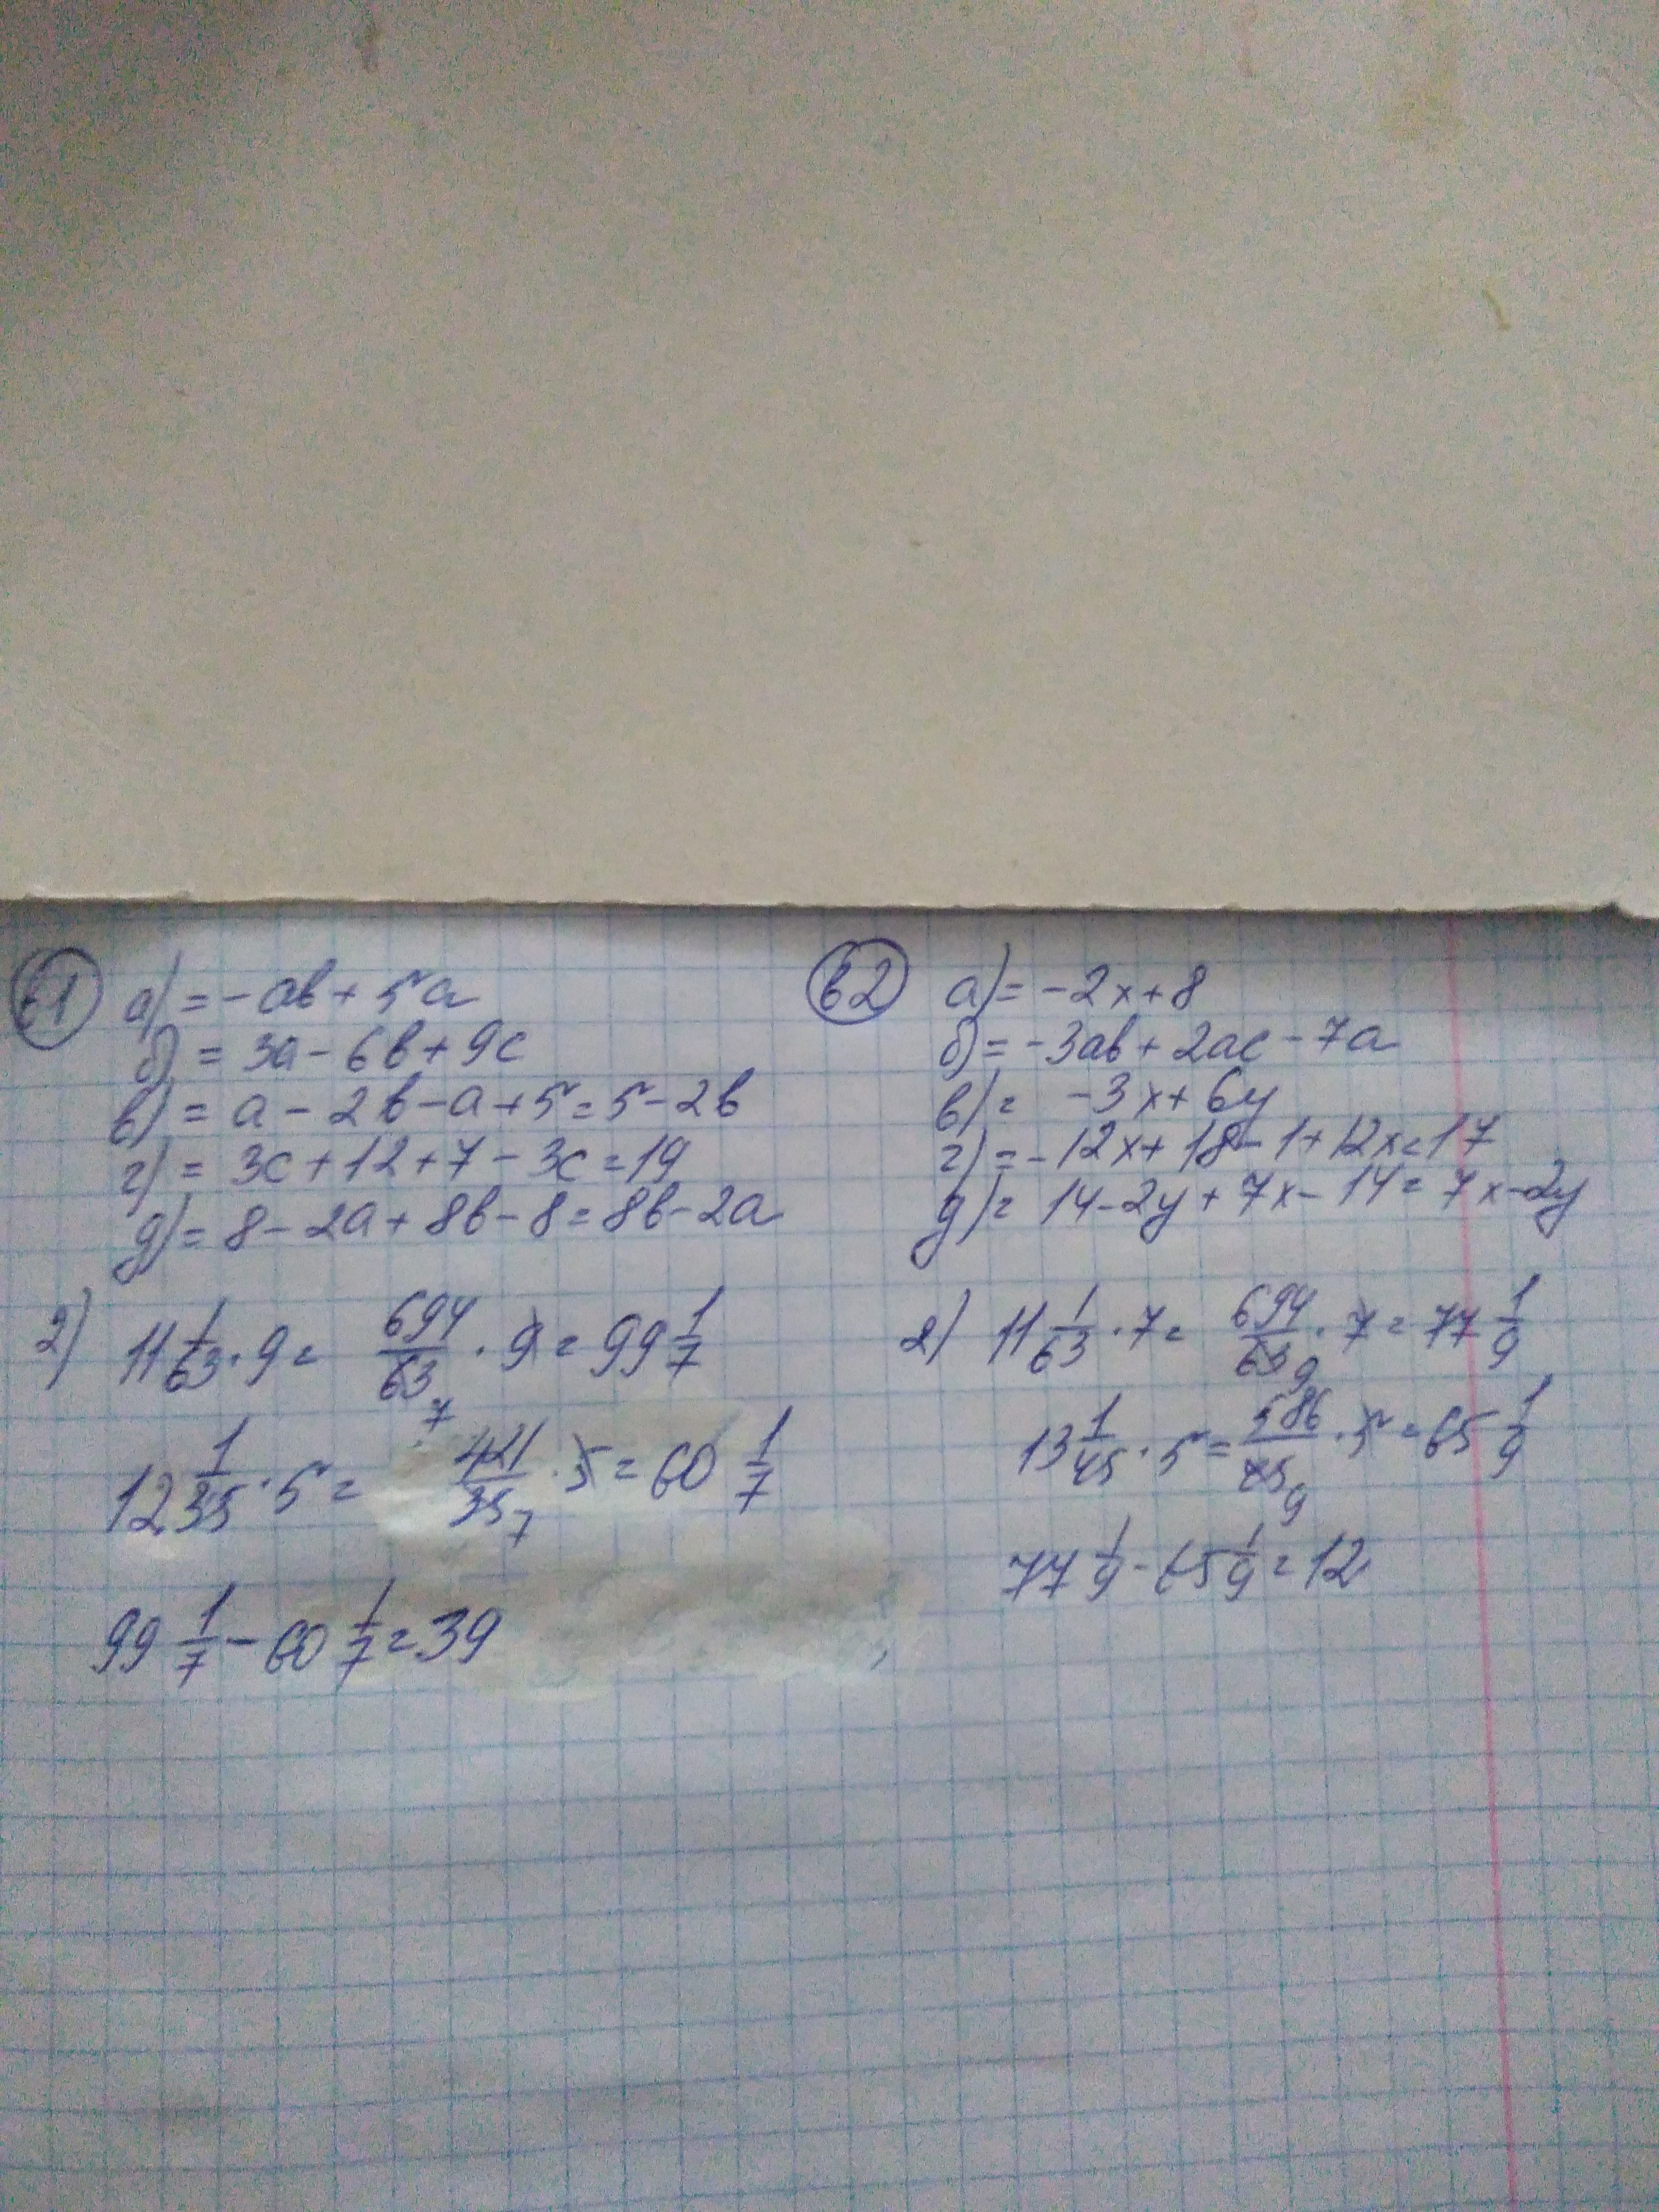 в1
а) = -ab + 5a
б) = 3a - 6b + 9c
в) = a - 2b - a + 5 = 5 - 2b
г) = 3c + 12 + 7 - 3c = 19
д) = 8 - 2a + 8b - 8 = 8b - 2a
2) 11 1/63 · 9 = 694/63 7 · 9 = 99 1/7
12 1/35 · 5 = 421/35 7 · 5 = 60 1/7
99 1/7 - 60 1/7 = 39
в2
а) = -2x + 8
б) = -3ab + 2ac - 7a
в) = -3x + 6y
г) = -12x + 18 - 1 + 12x = 17
д) = 14 - 2y + 7x - 14 = 7x - 2y
2) 11 1/63 · 7 = 694/63 9 · 7 = 77 1/9
13 1/45 · 5 = 586/45 9 · 5 = 65 1/9
77 1/9 - 65 1/9 = 12